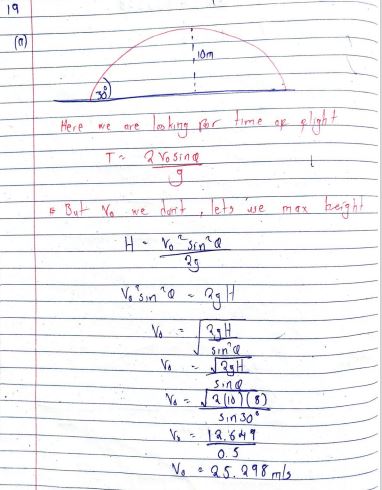 19
(a)
10m
30°
Here we are looking for time of flight
T = 2 V₀ sin θ / g
But V₀ we don't, lets use max height
H = V₀² sin² θ / 2g
V₀² sin² θ = 2gH
V₀ = √(2gH / sin² θ)
V₀ = √(2gH) / sin θ
V₀ = √(2(10)(8)) / sin 30°
V₀ = 12.649 / 0.5
V₀ = 25.298 m/s